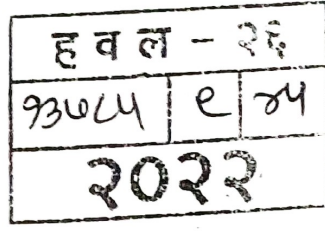 हवल - २६
१३७८५ | ९ | २५
२०२२